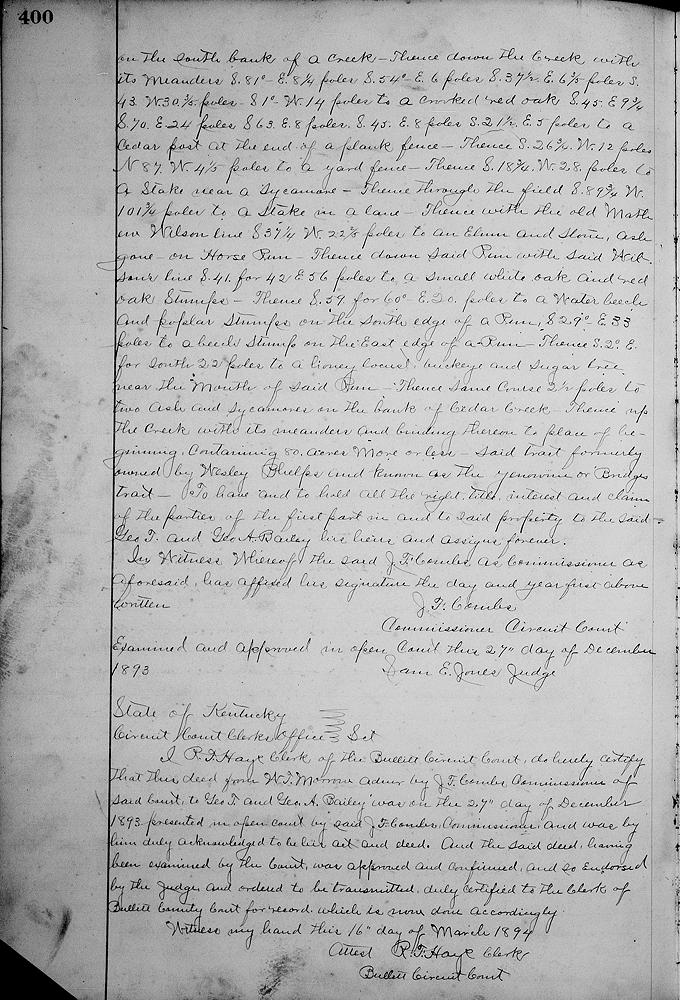 400
on the south bank of a creek - Thence down the Creek with
its Meanders S. 81° E. 8¼ poles S. 54° E. 6 poles S. 37½ E. 6⅗ poles S.
43. W. 30.⅗ poles S 1° W. 14 poles to a crooked red oak S. 45 E 9¾
S. 70. E 24 poles S 63. E. 8 poles. S. 45. E. 8 poles S. 21½. E. 5 poles to a
Cedar post at the end of a plank fence - Thence S. 26¾. W. 12 poles
N 87. W. 4⅗ poles to a yard fence - Thence S. 18¾. W. 28 poles to
a Stake near a Sycamore - Thence through the field S. 89¾ W.
101¾ poles to a Stake in a lane - Thence with the old Math
ew Wilson line S 37¼ W. 22⅗ poles to an Elum and Stone, ash
gone - on Horse Run - Thence down Said Run with Said Wil-
son's line S. 41. for 42 E 56 poles to a Small white oak and red
oak Stumps - Thence S. 59 for 60° E. 20. poles to a Water beech
and poplar Stumps on the South edge of a Run, S 29° E 33
poles to a beech Stump on the East edge of a Run - Thence S. 2° E.
for South 22 poles to a honey locust, buckeye and Sugar tree
near the Mouth of Said Run - Thence Same Course 2½ poles to
two ash and Sycamores on the bank of Cedar Creek - Thence up
the Creek with its meanders and binding thereon to place of be-
ginning, Containing 80. acres More or less - Said trait formerly
owned by Wesley Phelps and known as the yenowine or Bridges
trait - To have and to hold all the right, title, interest and claim
of the parties of the first part in and to Said property to the Said
Geo T. and Geo A. Bailey his heirs and assigns forever.
In Witness Whereof the said J. F. Combs, as Commissioner as
aforesaid, has affixed his signature the day and year first above
written J. F. Combs
Commissioner Circuit Court
Examined and approved in open Court this 27" day of December
1893 Sam E. Jones Judge
State of Kentucky
Circuit Court Clerks Office Sct
I R. F. Hays Clerk of the Bullitt Circuit Court, do hereby certify
that this deed from W. T. Morrow Admr by J. F. Combs Commissioner of
Said Court, to Geo T. and Geo. A. Bailey was on the 27" day of December
1893. presented in open court by said J. F. Combs, Commissioner, and was by
him duly acknowledged to be his act and deed. And the said deed, having
been examined by the Court, was approved and confirmed, and so endorsed
by the Judge and ordered to be transmitted, duly certified to the Clerk of
Bullitt County Court for record. which is now done accordingly.
Witness my hand this 16" day of March 1894
Attest R. F. Hays Clerk
Bullitt Circuit Court